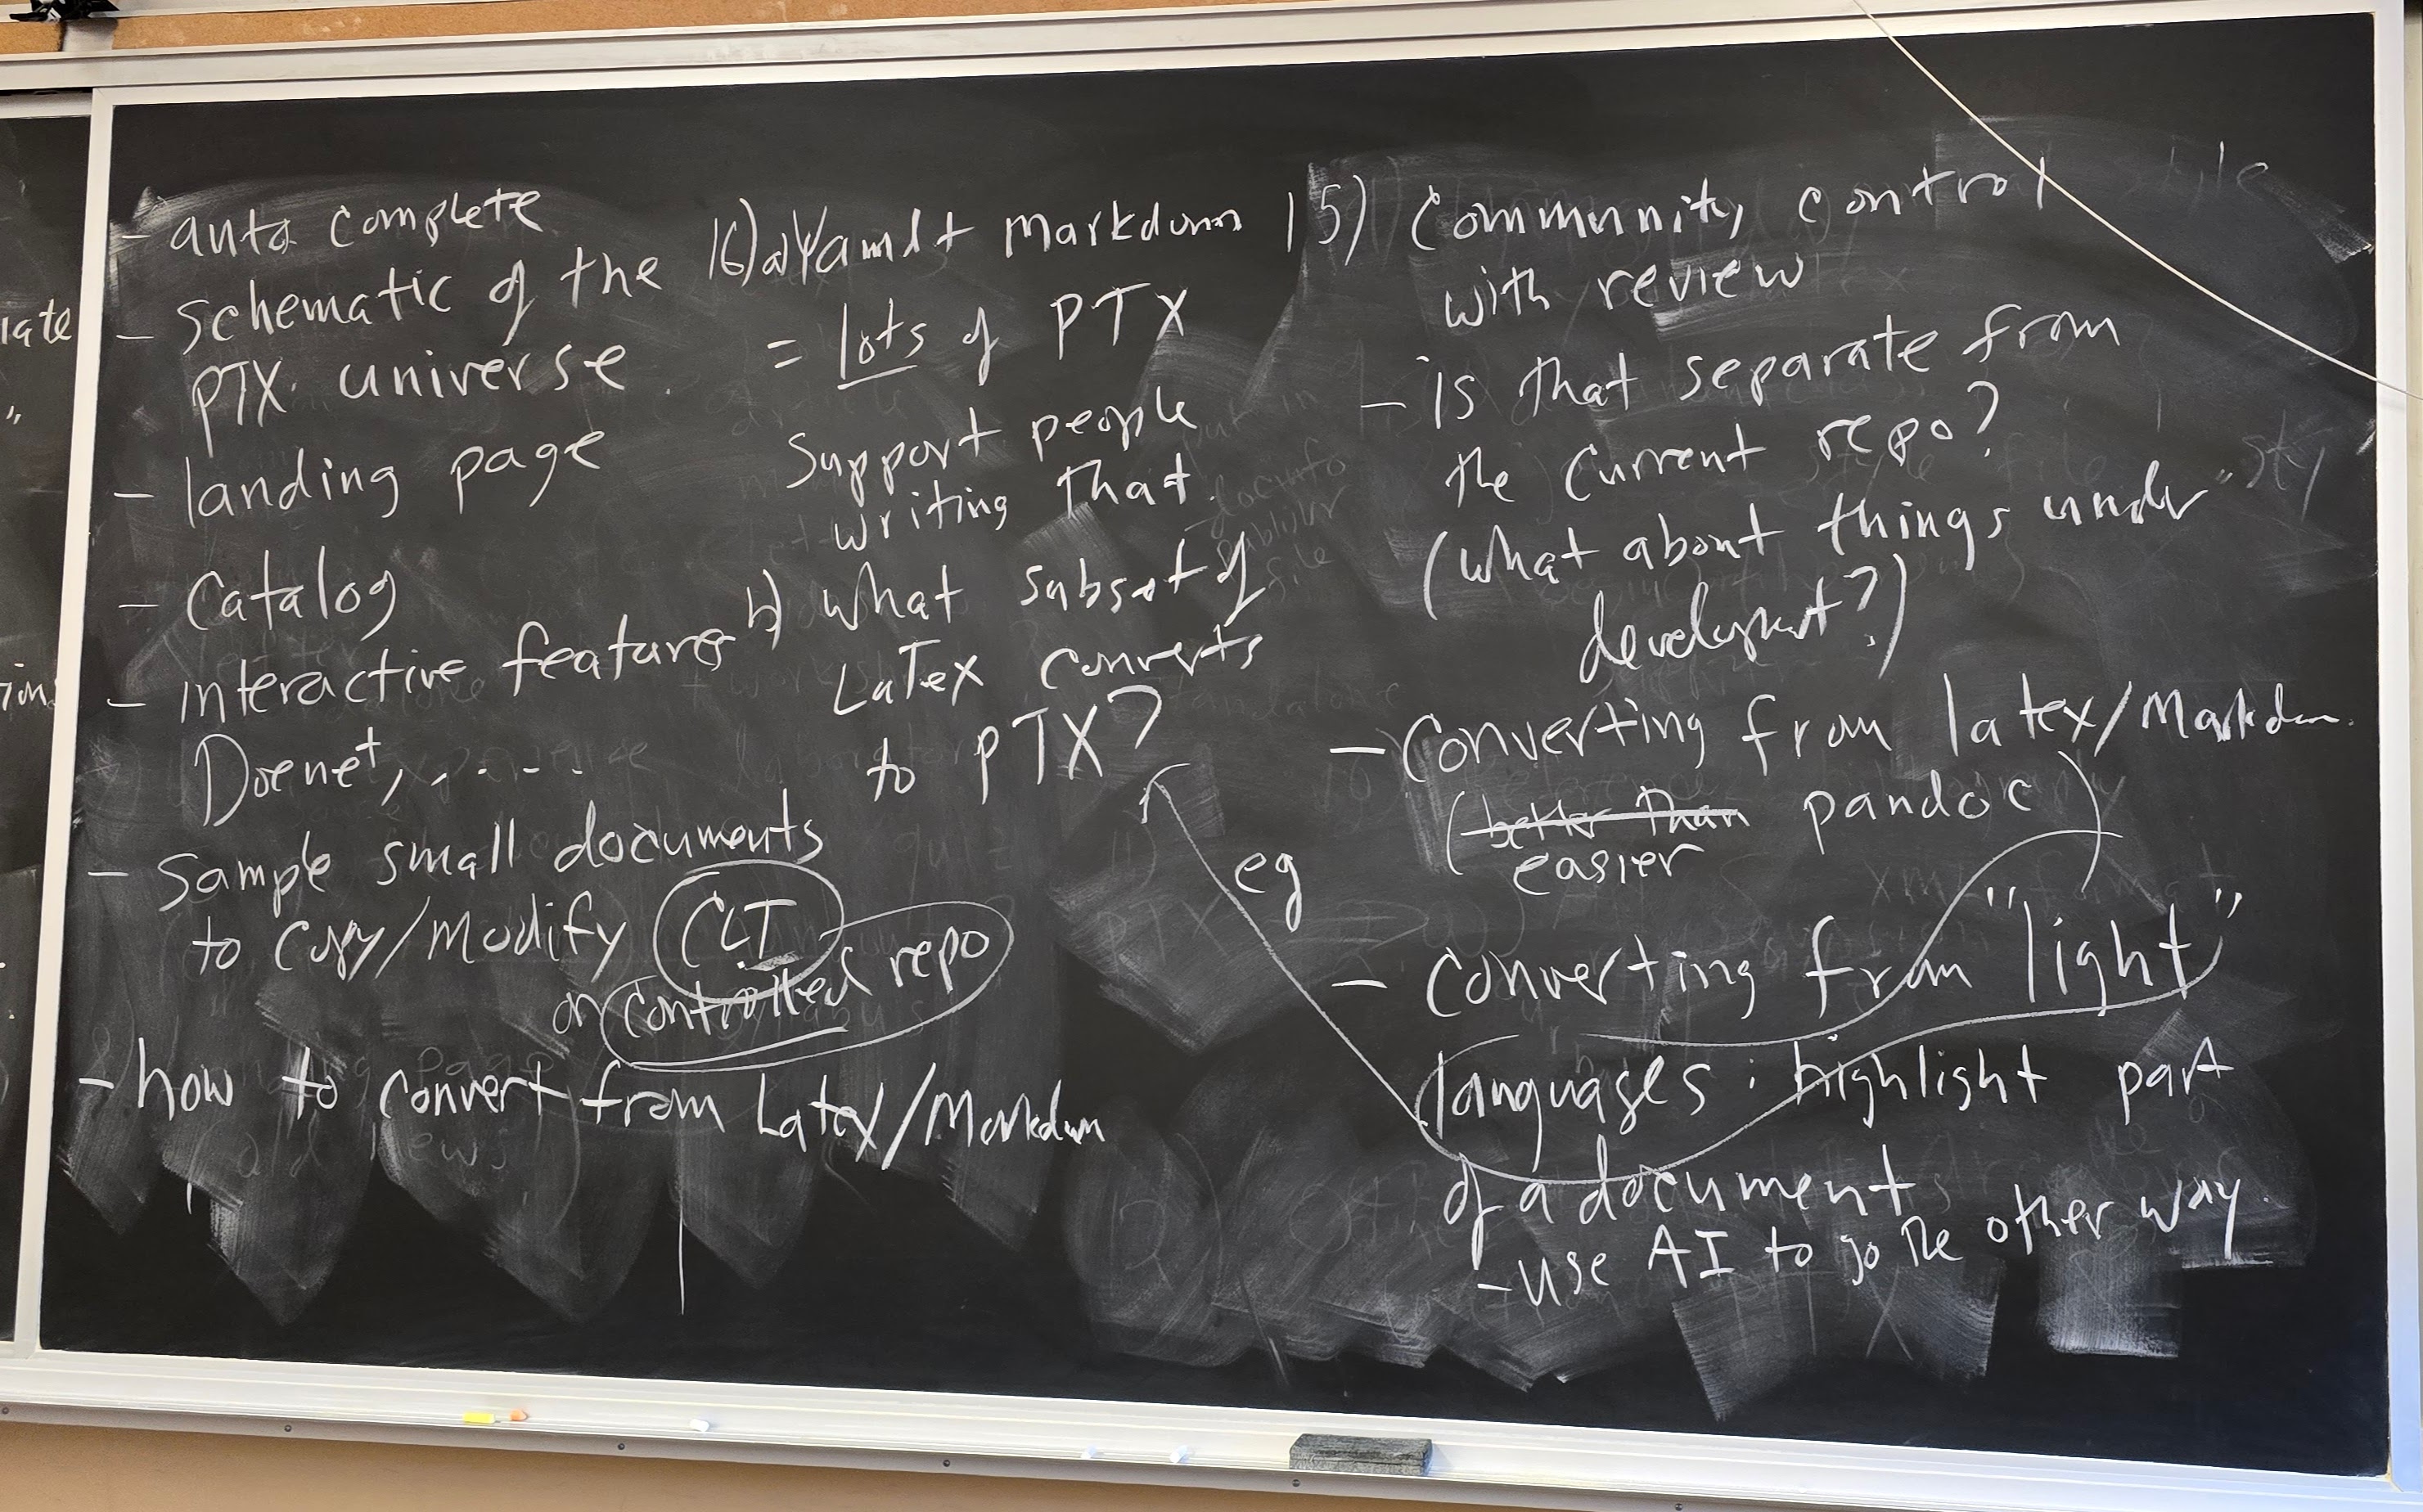 - auto complete
- schematic of the
PTX universe
- landing page
- Catalog
- interactive features
Doenet, . - - -
- Sample small documents
to copy/modify CLI
or controlled repo
- how to convert from Latex/Markdown
16) a) Yaml + Markdown
= lots of PTX
Support people
writing that.
b) what subset of
LaTex converts
to PTX?
eg
15) Community control
with review
- is that separate from
the current repo?
(what about things under
development?)
- Converting from latex/Markdown.
(better than pandoc)
easier
- Converting from "light"
languages : highlight part
of a document
- use AI to go the other way.
late
"
ions
file
old news